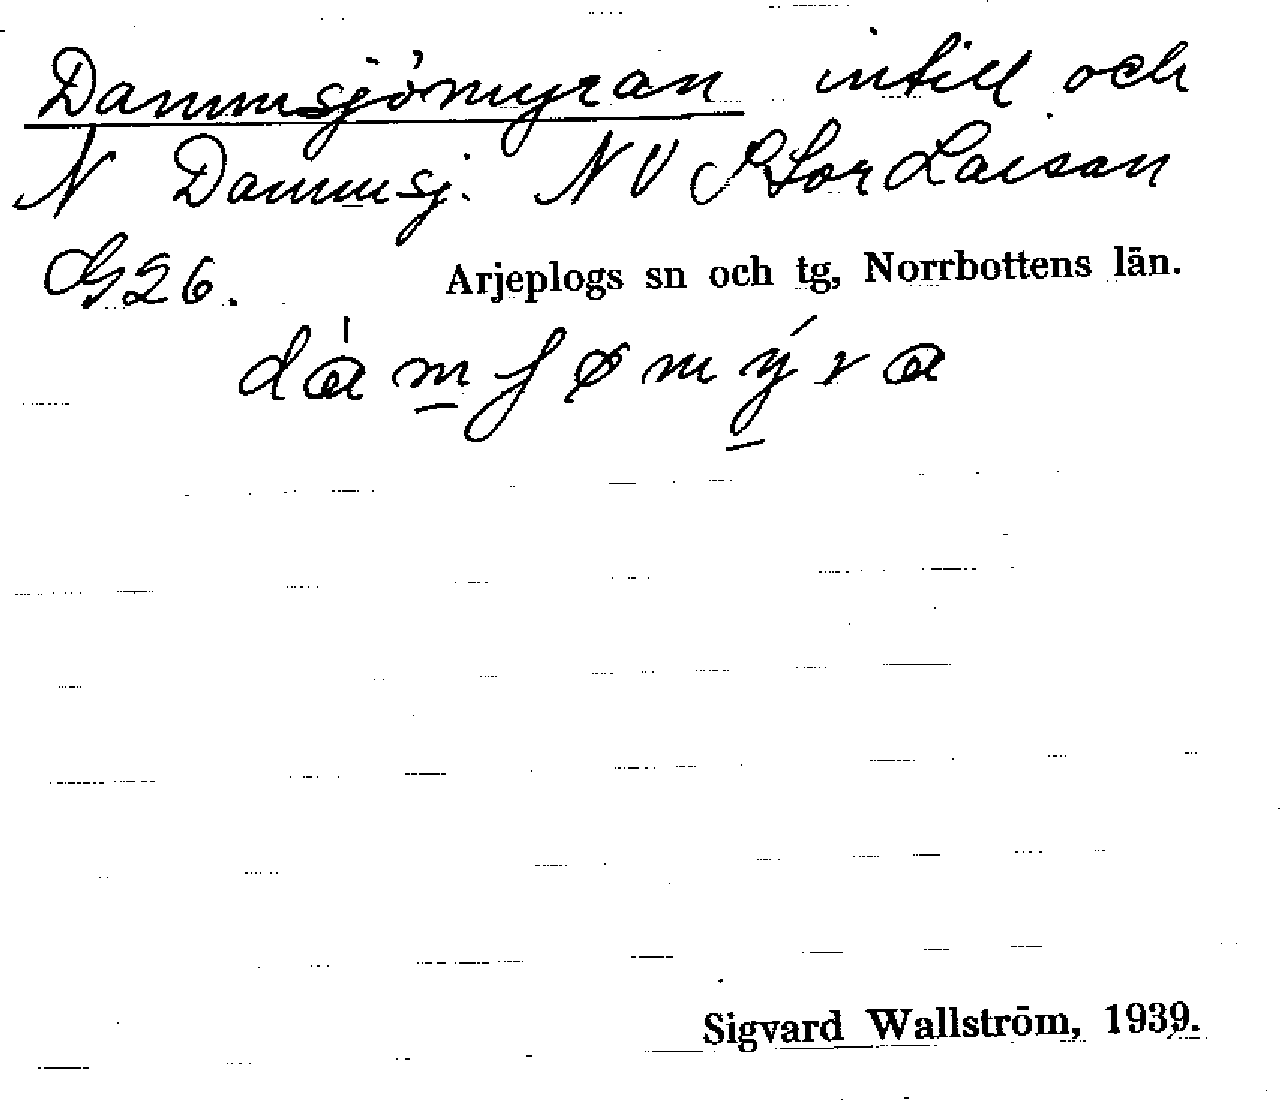 Dammsjömyran intill och
N Dammsj. NV Stor Laisan
G26.
Arjeplogs sn och tg, Norrbottens län.
dàm̲ʃømý̲ra
Sigvard Wallström, 1939.